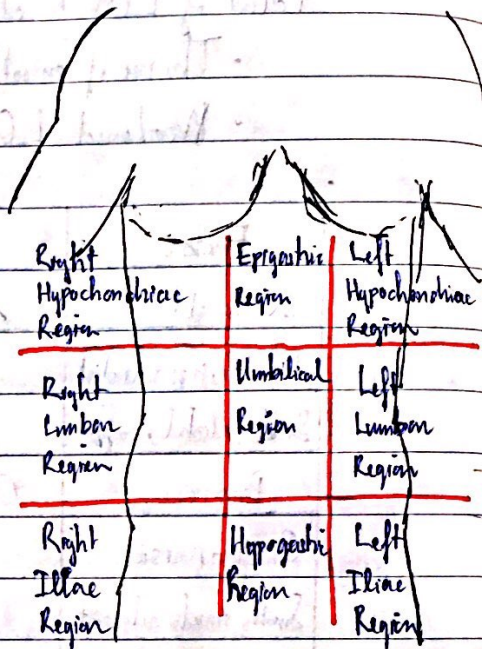 Right
Hypochondriac
Region
Epigastric
Region
Left
Hypochondriac
Region
Right
Lumbar
Region
Umbilical
Region
Left
Lumbar
Region
Right
Illiac
Region
Hypogastric
Region
Left
Iliac
Region